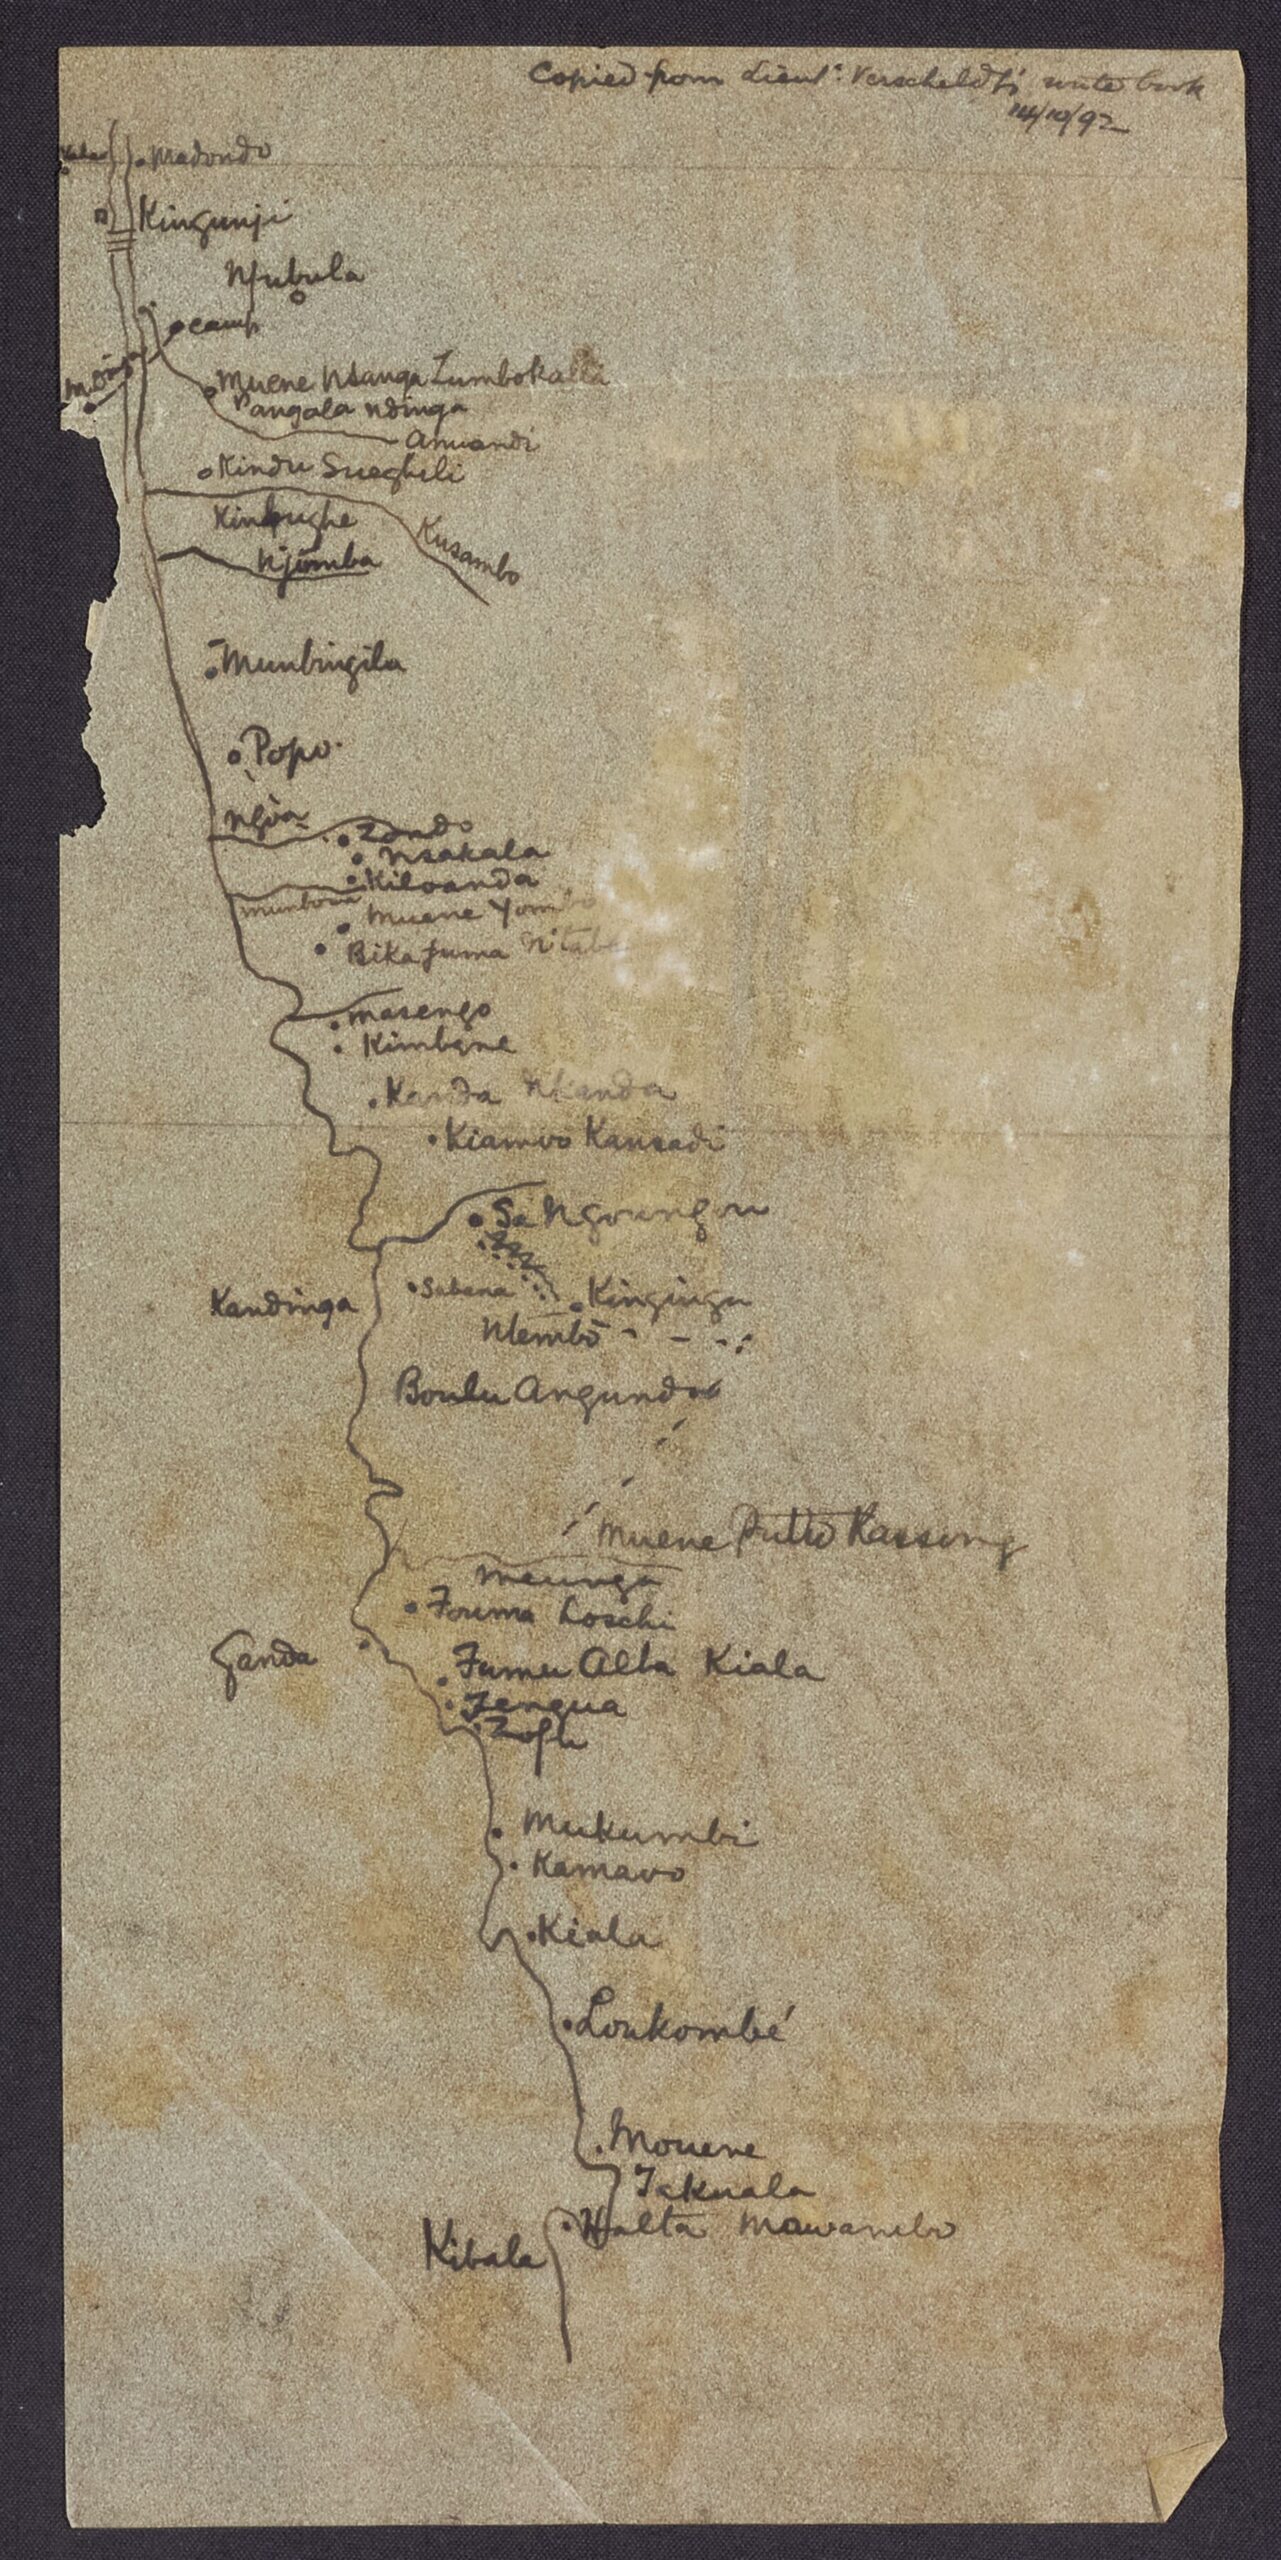 Copied from Lieut: Verscheldt's note book
14/10/92
Madondo
Kingunji
Nfubula
camp
Muene Nsanga Lumbokalla
Pangala Ndinga
Amuandi
Kindu Suegheli
Kusambo
Njumba
Munbingila
Popo
Ngoa
Zondo
Nsakala
Kiloanda
Muene Yombo
Bika fuma
Masengo
Kimbane
Kanda Nkanda
Kiamvo Kansadi
Sa Ngoungou
Sabana
Kinginga
Kandinga
Ntembo
Boulu Angundo
Muene Putto Kassong
Meunga
Fouma Loschi
Ganda
Fumu Alta Kiala
Tengua
Zofu
Mukumbi
Kamavo
Kiala
Loukombé
Mouene
Takuala
Halta Mawambo
Kibala